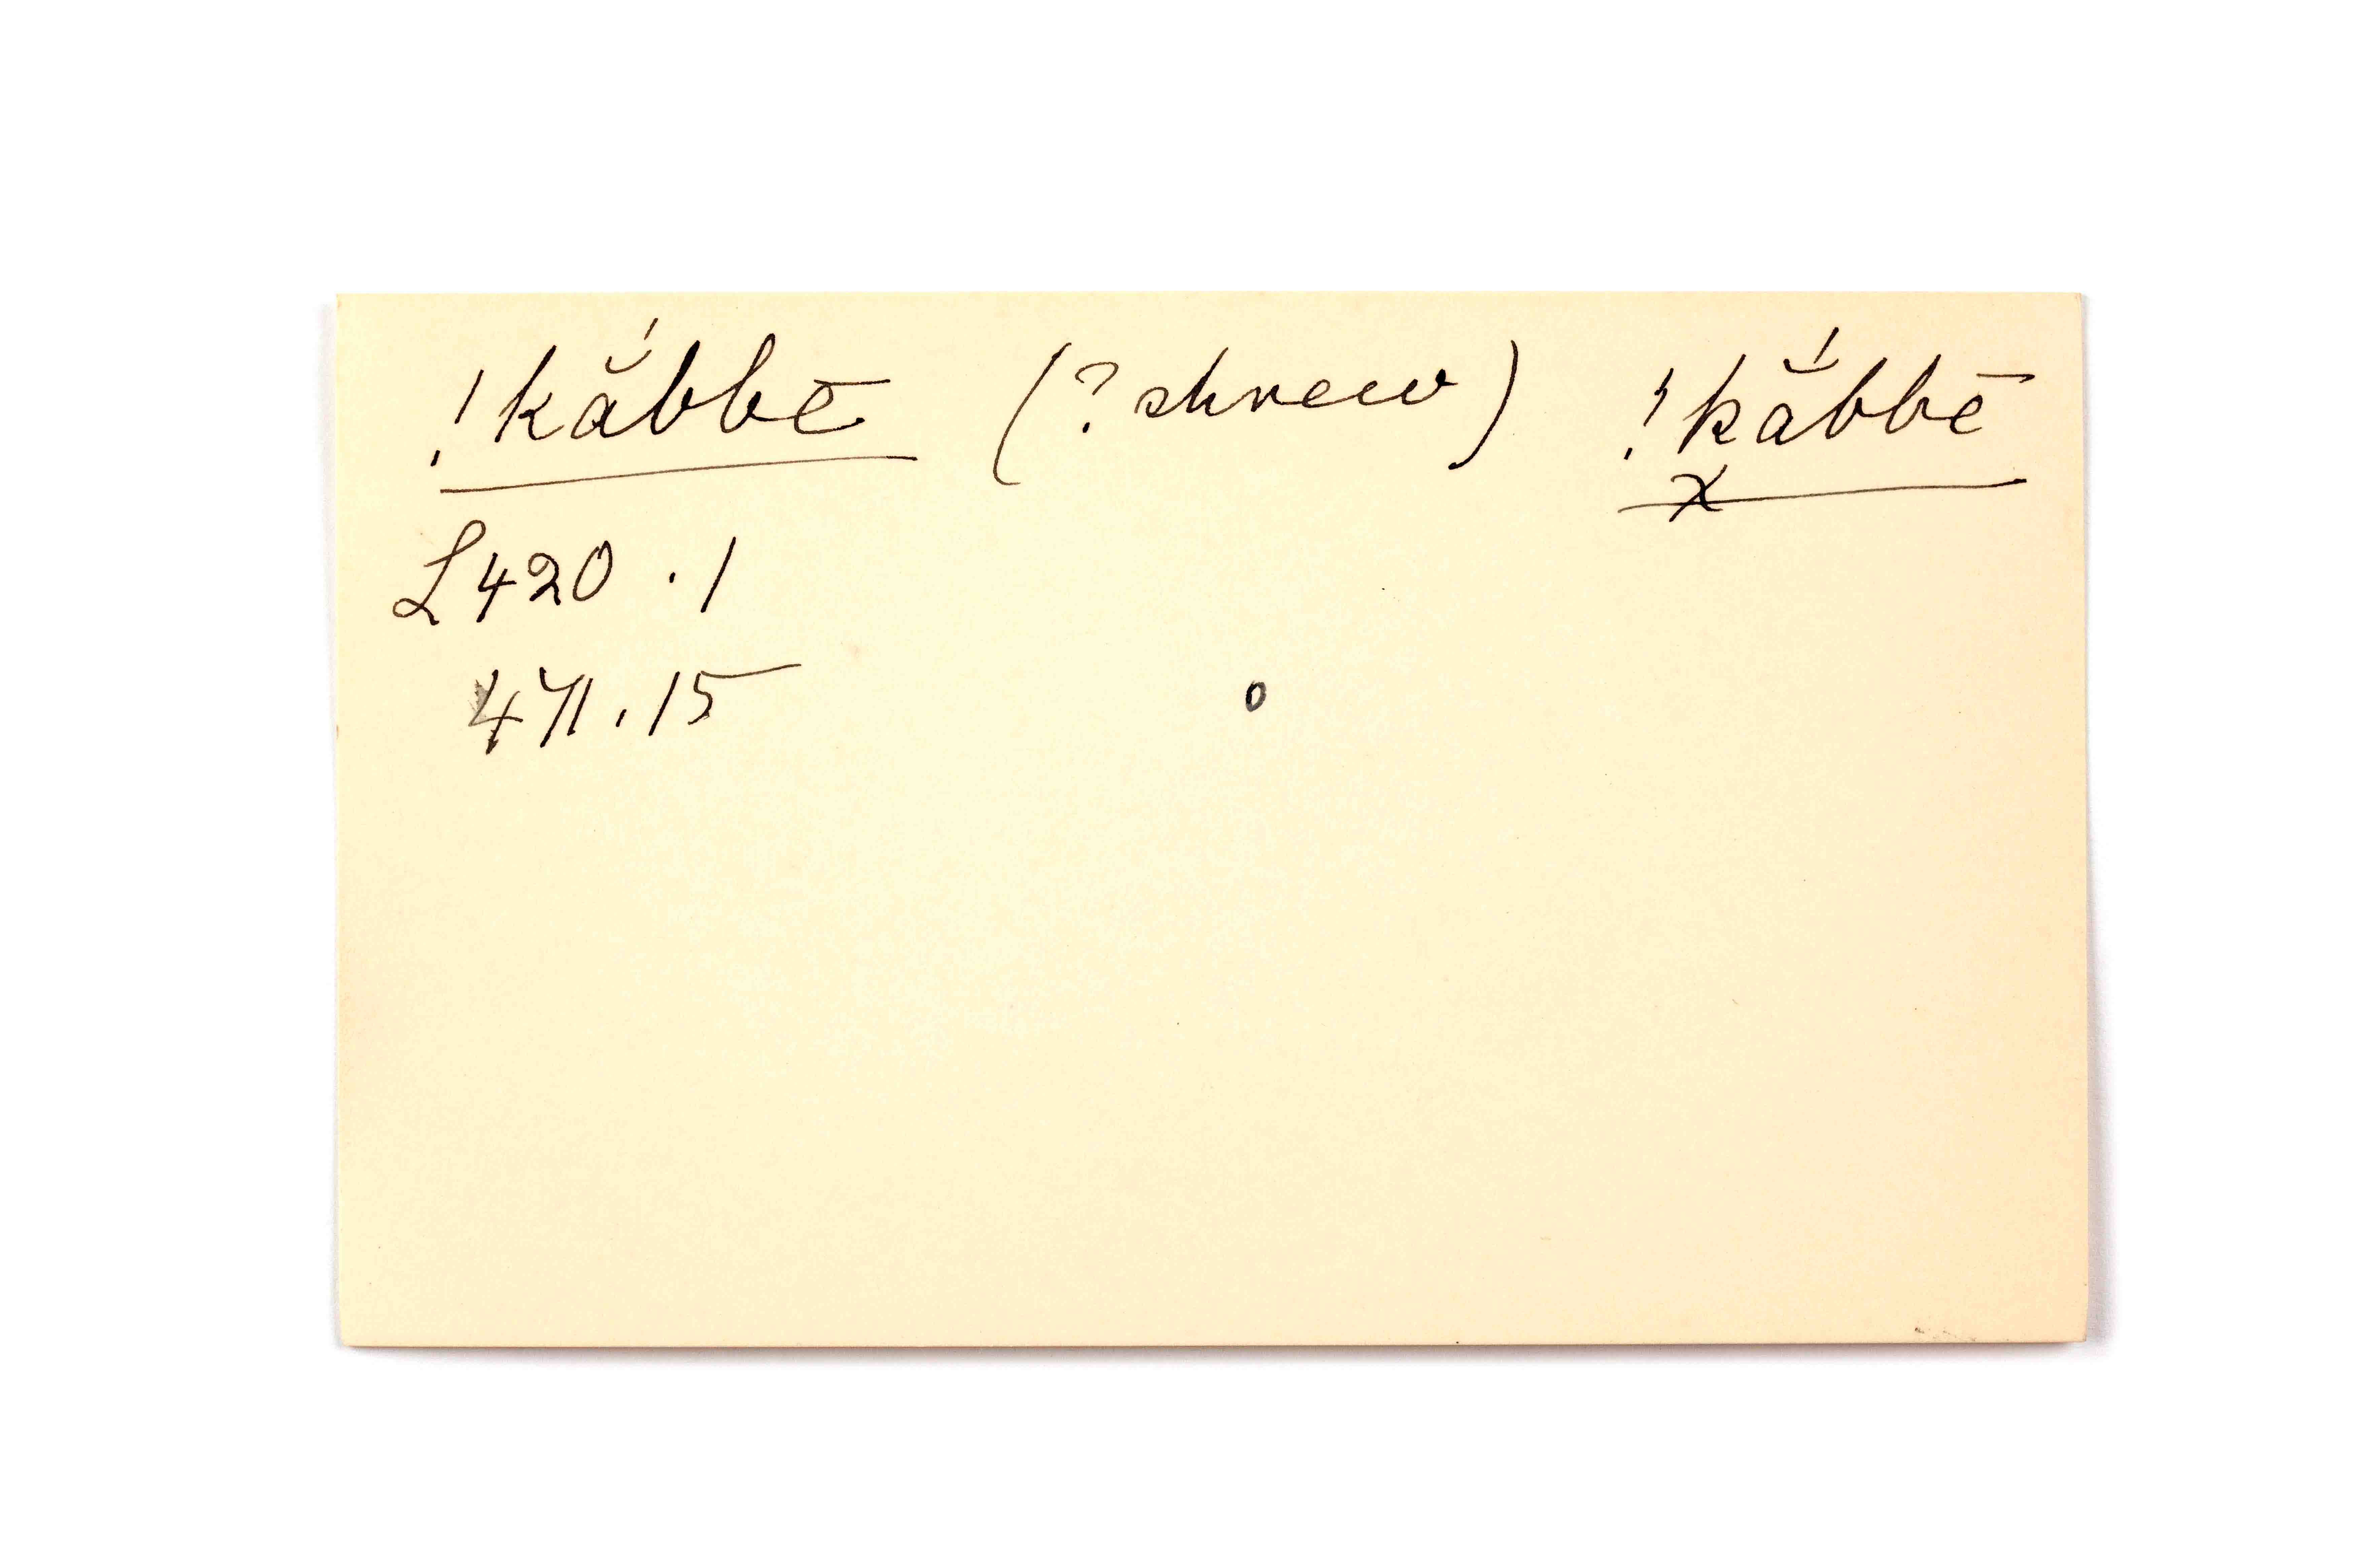 !kắbbē (? shrew) !k̭ắbbē
L 420 . 1
471 . 15
o